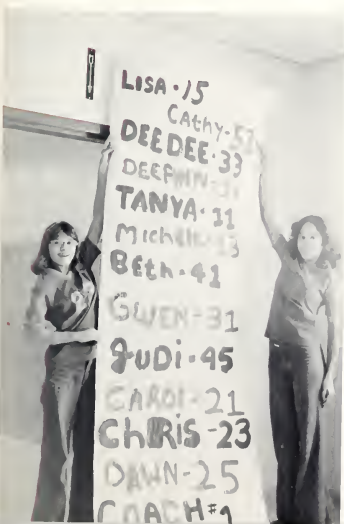 LISA·15
Cathy-
DEEDEE·33
TANYA·31
Michele
BEth·41
GWEN-31
JUDi·45
CAROl-21
ChRis-23
DAWN-25
COACH#1